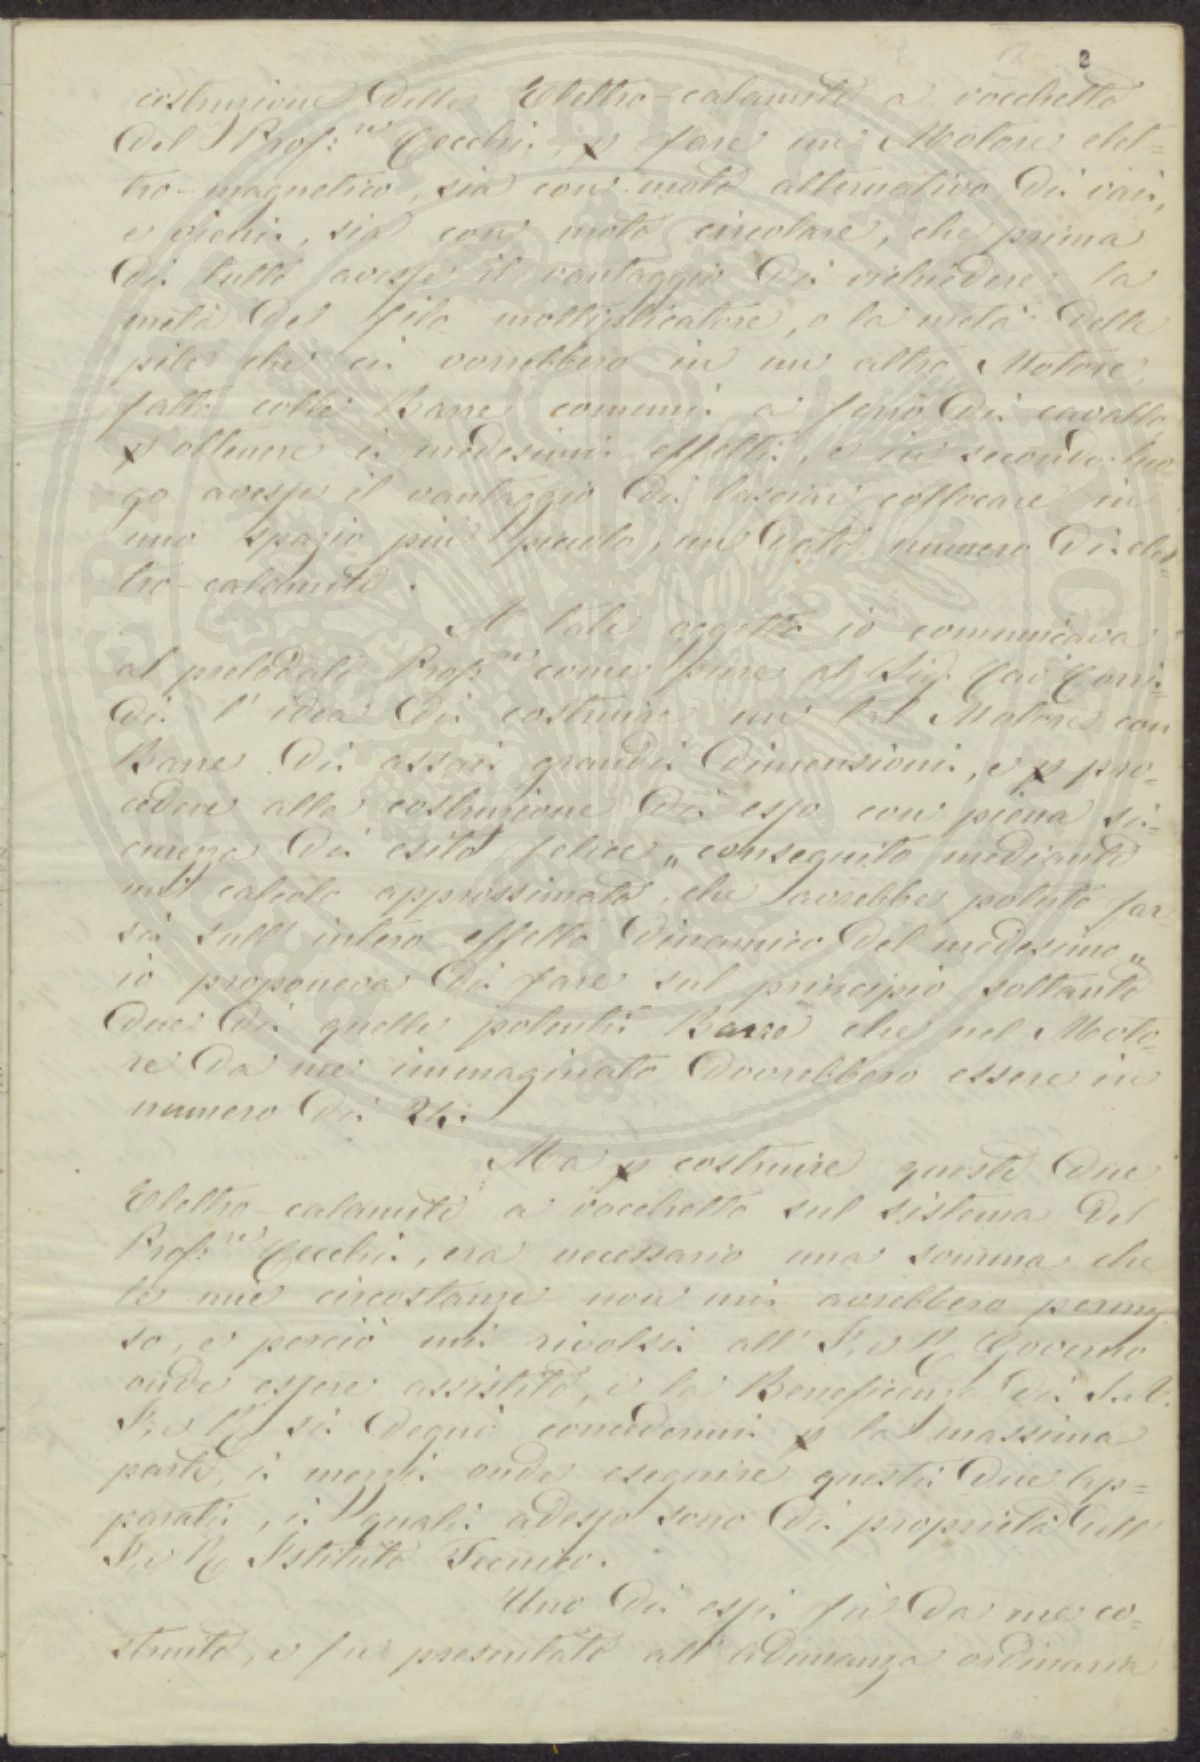 2
costruzione delle Elettro-calamite a rocchetto
del Prof:re Cecchi, p fare un Motore elet=
tro-magnetico, sia con moto alternativo di vai,
e vieni, sia con moto circolare, che prima
di tutto avesse il vantaggio di richiedere la
metà del filo moltiplicatore, o la metà delle
pile che ci vorrebbero in un altro Motore
fatto colle Barre comuni a ferro di cavallo
p ottenere i medesimi effetti, e in secondo luo
go avesse il vantaggio di lasciar collocare in
uno spazio più piccolo, un dato numero di elet=
tro-calamite.
A tale oggetto io comunicava
al prelodato Prof:re come pure al Sig. Cav Corri=
di l'idea di costruire un tal Motore con
Barre di assai grandi dimensioni, e p pro=
cedere alla costruzione di esso con piena si=
curezza di esito felice „ conseguito mediante
un calcolo approssimato, che avrebbe potuto far
si sull'intero effetto dinamico del medesimo „
io proponeva di fare sul principio soltanto
due di quelle potenti Barre che nel Moto=
re da me immaginato dovrebbero essere in
numero di 24:
Ma p costruire queste due
Elettro-calamite a rocchetto sul sistema del
Prof:re Cecchi, era necessario una somma che
le mie circostanze non mi avrebbero permes
so, e perciò mi rivolsi all'I. e R. Governo
onde essere assistito, e la Beneficenza di S.A.
I. e R. si degnò concedermi p la massima
parte, i mezzi onde eseguire questi due Ap=
parati, i quali adesso sono di proprietà dell'
I. e R. Istituto Tecnico.
Uno di essi fù da me co=
struito, e fu presentato all'adunanza ordinaria